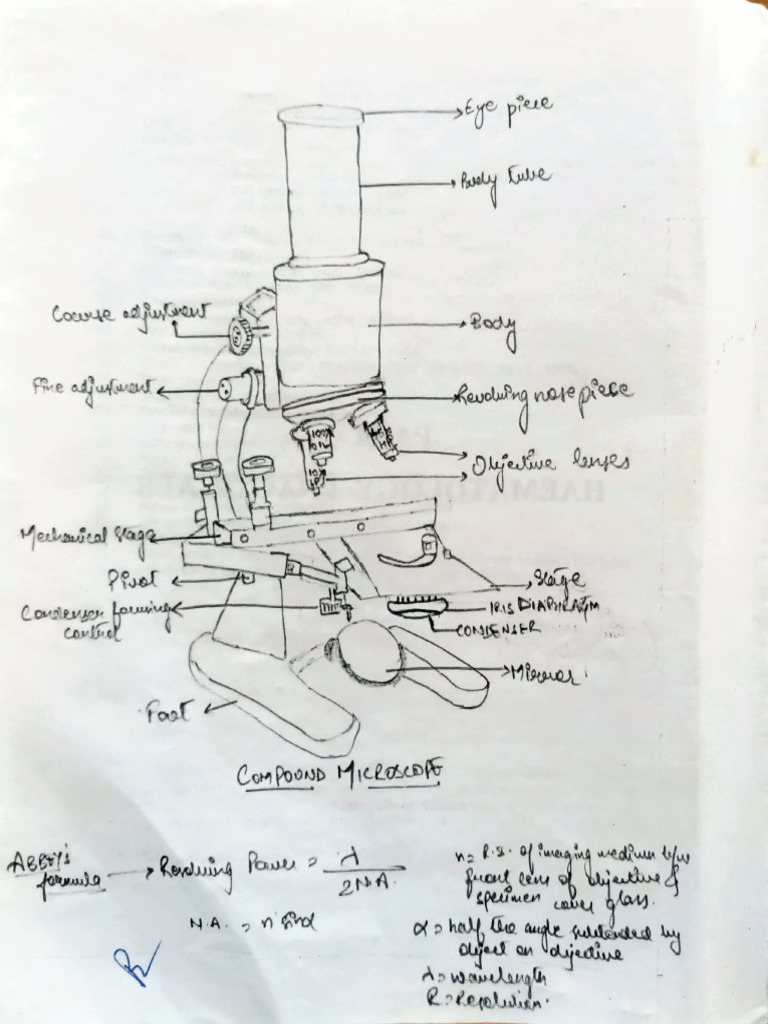 Eye piece
Body tube
Coarse adjustment
Body
Fine adjustment
Revolving nose piece
100X
10X
Objective lenses
Mechanical stage
Pivot
Stage
Condenser
control
IRIS DIAPHRAGM
CONDENSER
Mirror
Foot
COMPOUND MICROSCOPE
ABBEY'S
formula
Resolving Power = λ
2N.A.
N.A. = n sinα
n = R.I. of imaging medium b/w
front lens of objective &
specimen cover glass.
α = half the angle subtended by
object on objective
λ = wavelength
R = Resolution.
HAEMATOLOGY